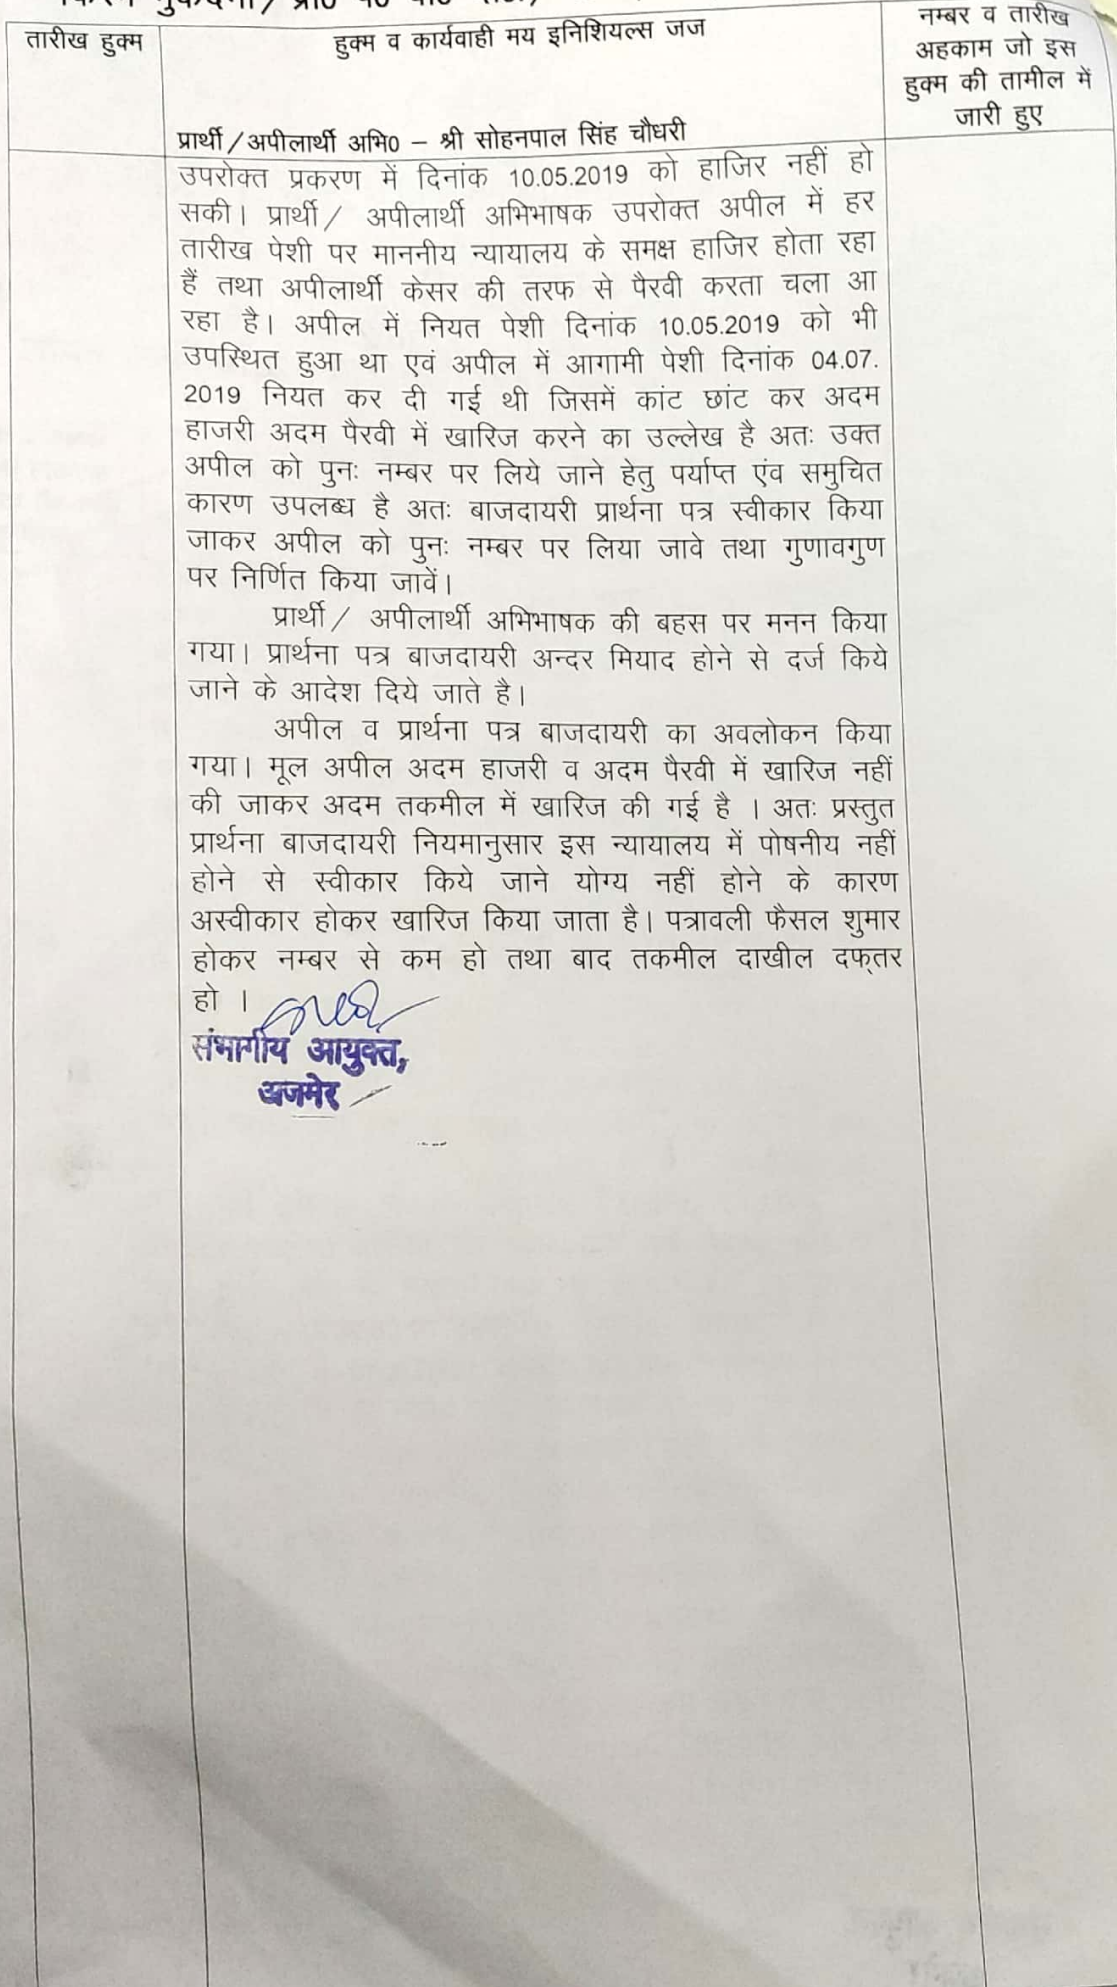 तारीख हुक्म
हुक्म व कार्यवाही मय इनिशियल्स जज
नम्बर व तारीख
अहकाम जो इस
हुक्म की तामील में
जारी हुए
प्रार्थी/अपीलार्थी अभि0 – श्री सोहनपाल सिंह चौधरी
उपरोक्त प्रकरण में दिनांक 10.05.2019 को हाजिर नहीं हो
सकी। प्रार्थी/ अपीलार्थी अभिभाषक उपरोक्त अपील में हर
तारीख पेशी पर माननीय न्यायालय के समक्ष हाजिर होता रहा
हैं तथा अपीलार्थी केसर की तरफ से पैरवी करता चला आ
रहा है। अपील में नियत पेशी दिनांक 10.05.2019 को भी
उपस्थित हुआ था एवं अपील में आगामी पेशी दिनांक 04.07.
2019 नियत कर दी गई थी जिसमें कांट छांट कर अदम
हाजरी अदम पैरवी में खारिज करने का उल्लेख है अतः उक्त
अपील को पुनः नम्बर पर लिये जाने हेतु पर्याप्त एंव समुचित
कारण उपलब्ध है अतः बाजदायरी प्रार्थना पत्र स्वीकार किया
जाकर अपील को पुनः नम्बर पर लिया जावे तथा गुणावगुण
पर निर्णित किया जावें।
प्रार्थी/ अपीलार्थी अभिभाषक की बहस पर मनन किया
गया। प्रार्थना पत्र बाजदायरी अन्दर मियाद होने से दर्ज किये
जाने के आदेश दिये जाते है।
अपील व प्रार्थना पत्र बाजदायरी का अवलोकन किया
गया। मूल अपील अदम हाजरी व अदम पैरवी में खारिज नहीं
की जाकर अदम तकमील में खारिज की गई है । अतः प्रस्तुत
प्रार्थना बाजदायरी नियमानुसार इस न्यायालय में पोषनीय नहीं
होने से स्वीकार किये जाने योग्य नहीं होने के कारण
अस्वीकार होकर खारिज किया जाता है। पत्रावली फैसल शुमार
होकर नम्बर से कम हो तथा बाद तकमील दाखील दफ्तर
हो ।
संभागीय आयुक्त,
अजमेर